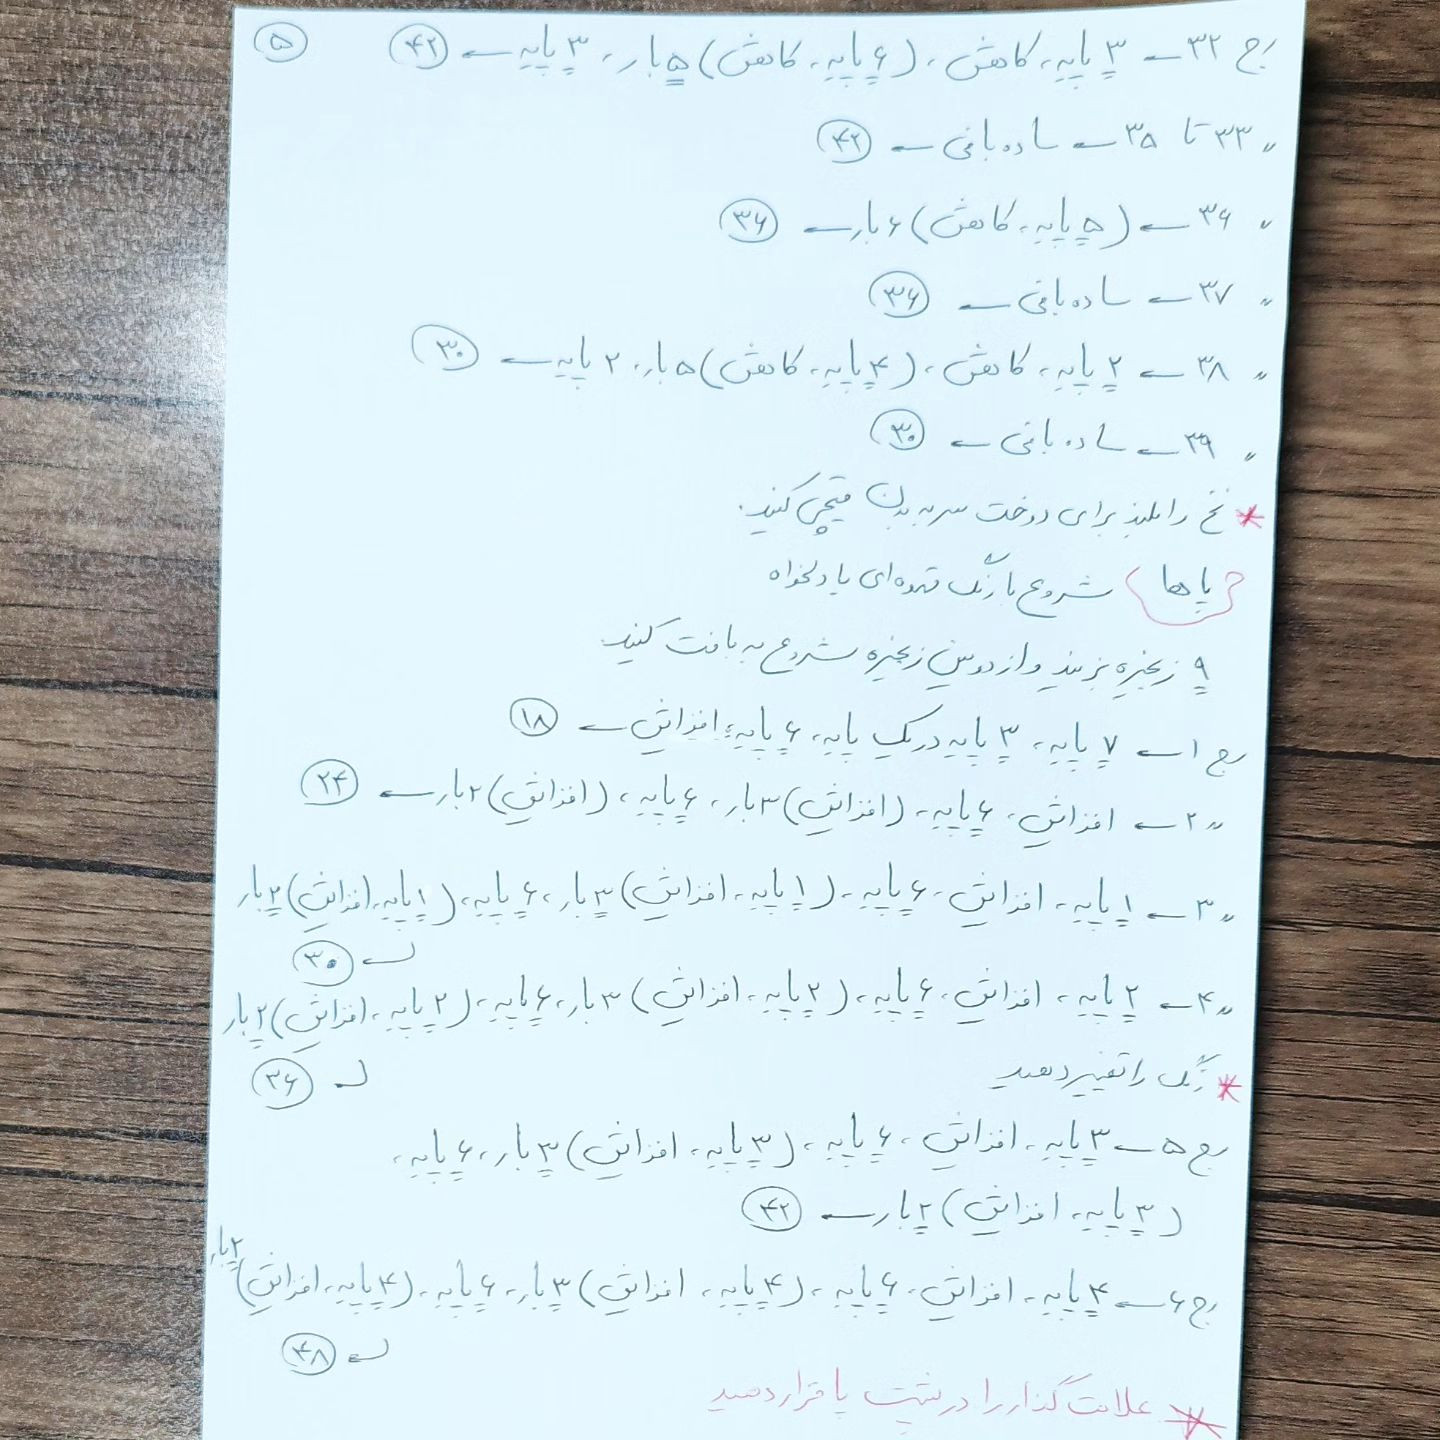 ۵
رج ۳۲ ← ۳ پایه، کاهش، (۶ پایه، کاهش) ۵ بار، ۳ پایه ← ۴۲
〃 ۳۳ تا ۳۵ ← ساده بافی ← ۴۲
〃 ۳۶ ← (۵ پایه، کاهش) ۶ بار ← ۳۶
〃 ۳۷ ← ساده بافی ← ۳۶
〃 ۳۸ ← ۲ پایه، کاهش، (۴ پایه، کاهش) ۵ بار، ۲ پایه ← ۳۰
〃 ۳۹ ← ساده بافی ← ۳۰
* نخ را بلند برای دوخت سر به بدن قیچی کنید.
{پا ها} شروع با رنگ قهوه ای یا دلخواه
۹ زنجیره بزنید و از دومین زنجیره شروع به بافت کنید.
رج ۱ ← ۷ پایه، ۳ پایه در یک پایه، ۶ پایه، افزایش ← ۱۸
〃 ۲ ← افزایش، ۶ پایه، (افزایش) ۳ بار، ۶ پایه، (افزایش) ۲ بار ← ۲۴
〃 ۳ ← ۱ پایه، افزایش، ۶ پایه، (۱ پایه، افزایش) ۳ بار، ۶ پایه، (۱ پایه، افزایش) ۲ بار
← ۳۰
〃 ۴ ← ۲ پایه، افزایش، ۶ پایه، (۲ پایه، افزایش) ۳ بار، ۶ پایه، (۲ پایه، افزایش) ۲ بار
← ۳۶
* رنگ را تغییر دهید
رج ۵ ← ۳ پایه، افزایش، ۶ پایه، (۳ پایه، افزایش) ۳ بار، ۶ پایه،
(۳ پایه، افزایش) ۲ بار ← ۴۲
رج ۶ ← ۴ پایه، افزایش، ۶ پایه، (۴ پایه، افزایش) ۳ بار، ۶ پایه، (۴ پایه، افزایش) ۲ بار
← ۴۸
* علامت گذار را در پشت پا قرار دهید